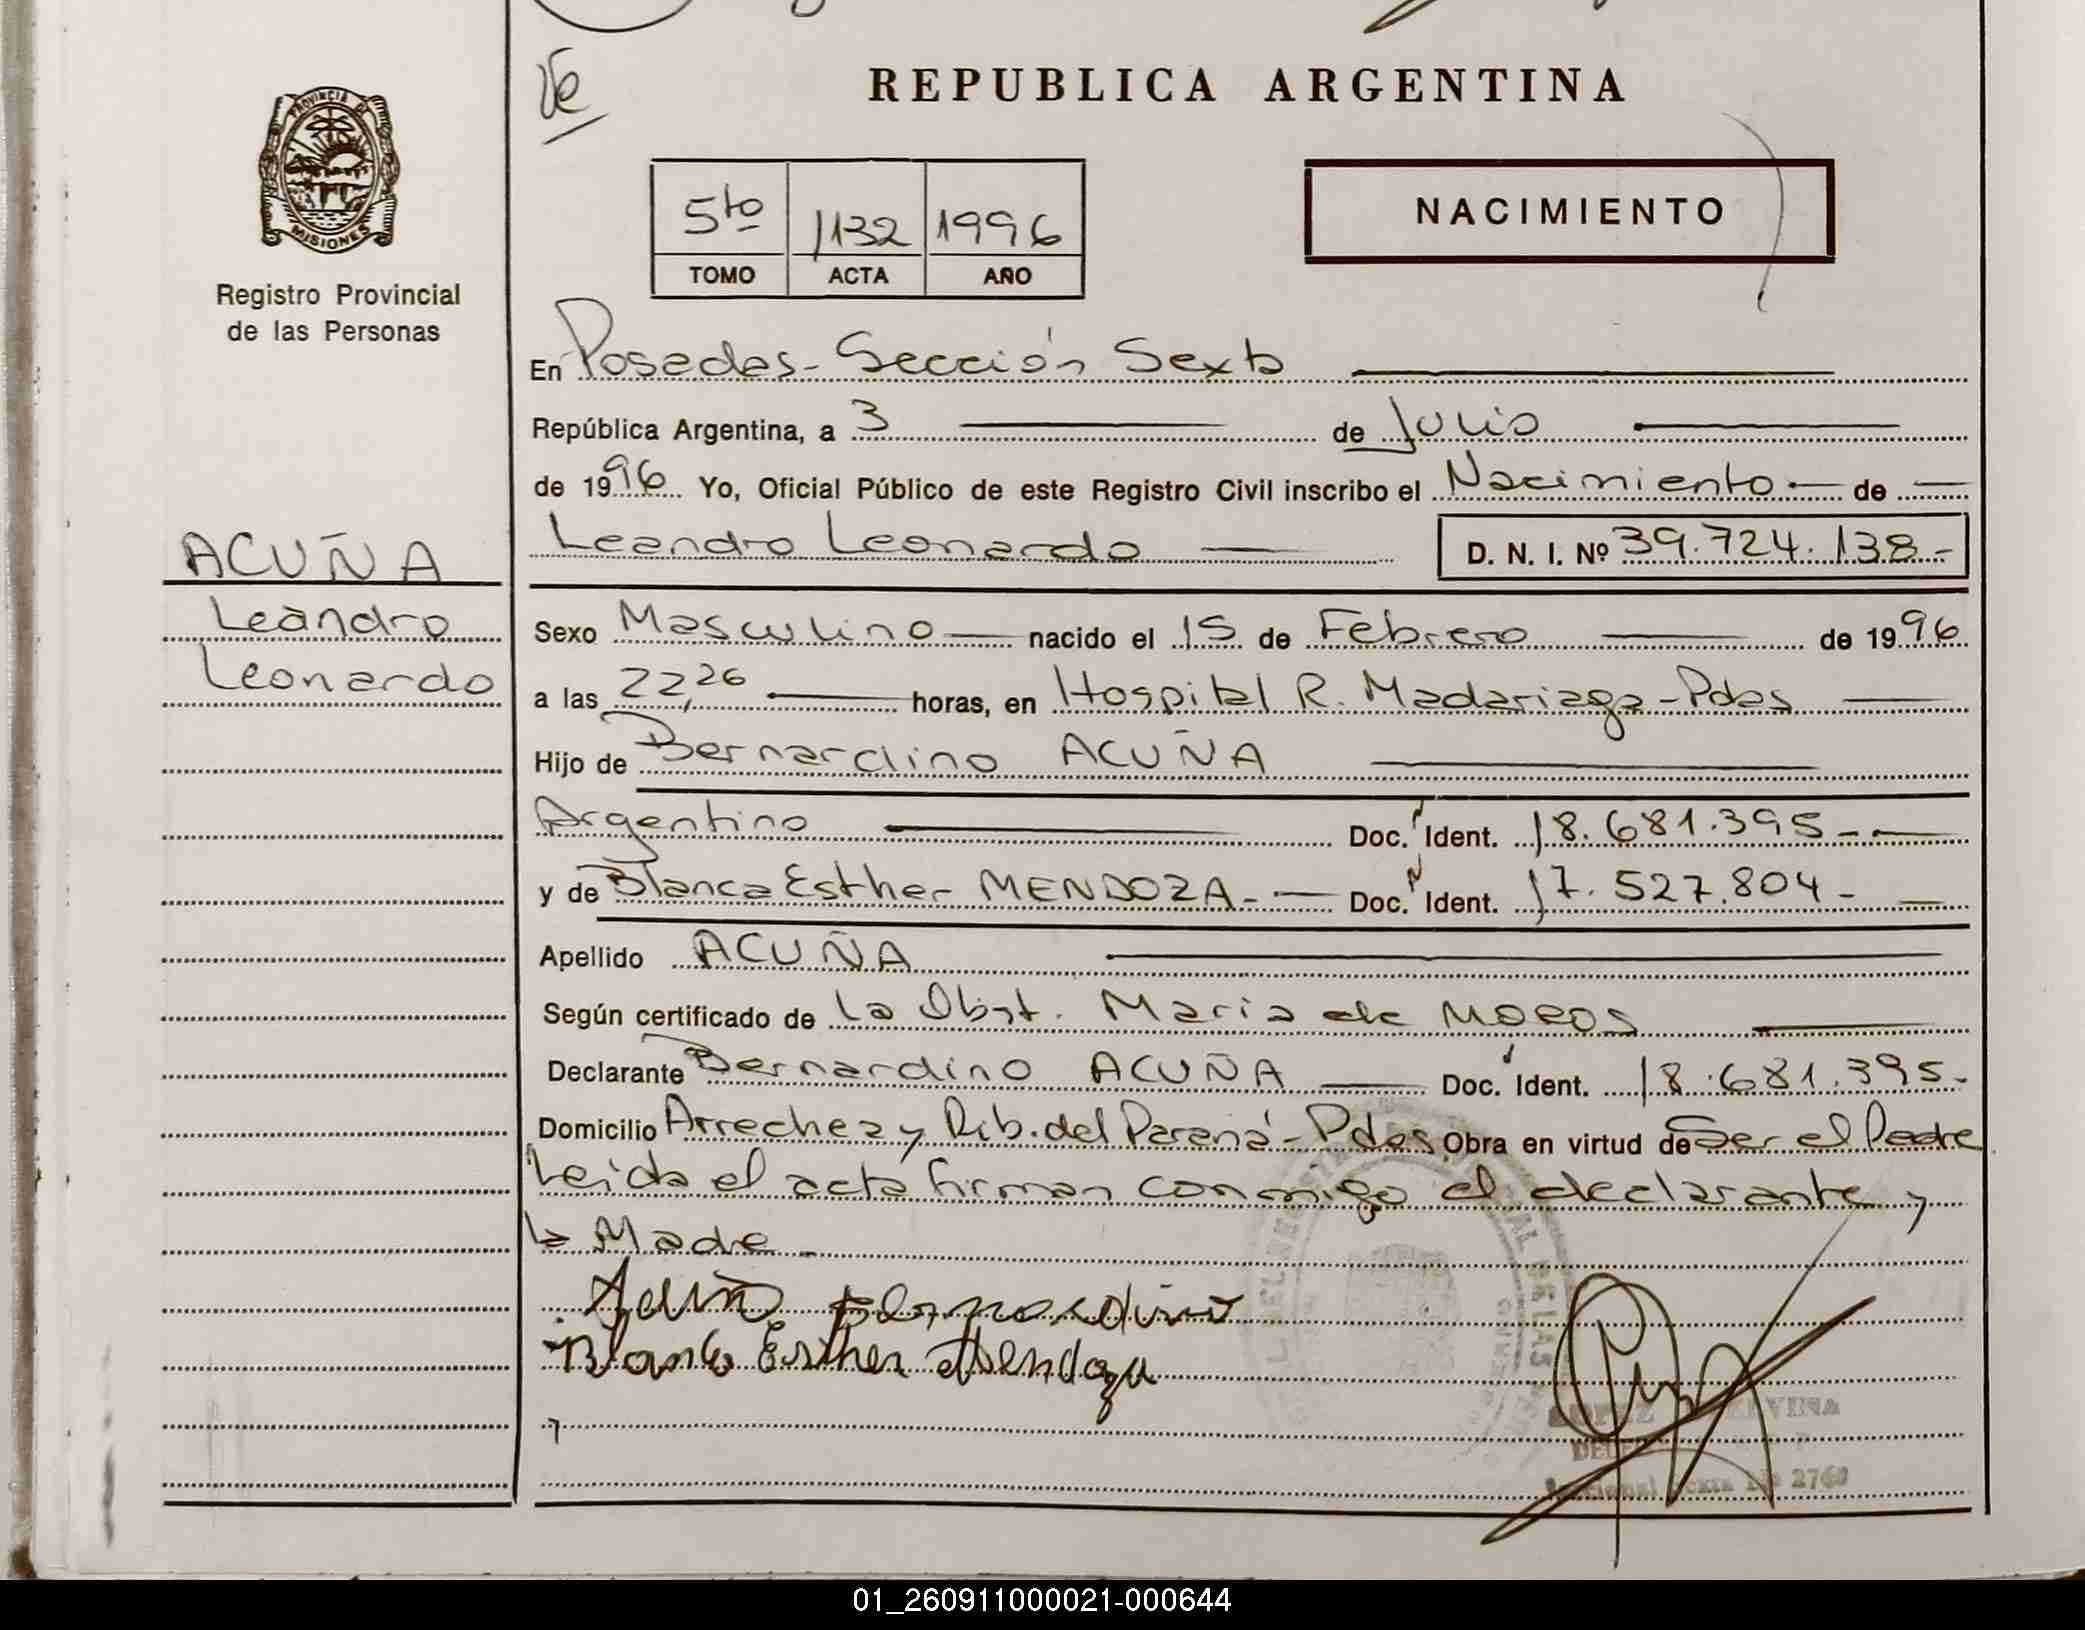 REPUBLICA ARGENTINA
PROVINCIA DE
MISIONES
Registro Provincial
de las Personas
5to 1132 1996
TOMO ACTA AÑO
NACIMIENTO
En Posadas - Sección Sexta
República Argentina, a 3 de Julio
de 1996 Yo, Oficial Público de este Registro Civil inscribo el Nacimiento de
Leandro Leonardo D. N. I. Nº 39.724.138.-
ACUÑA
Leandro
Leonardo
Sexo Masculino nacido el 15 de Febrero de 1996
a las 22,26 horas, en Hospital R. Madariaga - Pdas
Hijo de Bernardino ACUÑA
Argentino Doc. Ident. 18.681.395-
y de Blanca Esther MENDOZA.- Doc. Ident. 17.527.804-
Apellido ACUÑA
Según certificado de la Obst. Maria de MOROS
Declarante Bernardino ACUÑA Doc. Ident. 18.681.395.-
Domicilio Arrechea y Rib. del Paraná - Pdas Obra en virtud de Ser el Padre
Leida el acta firman conmigo el declarante y
la Madre -
Acuña Bernardino
Blanca Esther Mendoza
2760
01_260911000021-000644